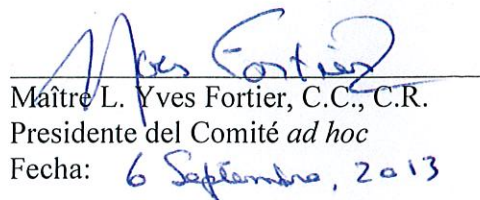 Yves Fortier
Maître L. Yves Fortier, C.C., C.R.
Presidente del Comité ad hoc
Fecha: 6 Septembre, 2013